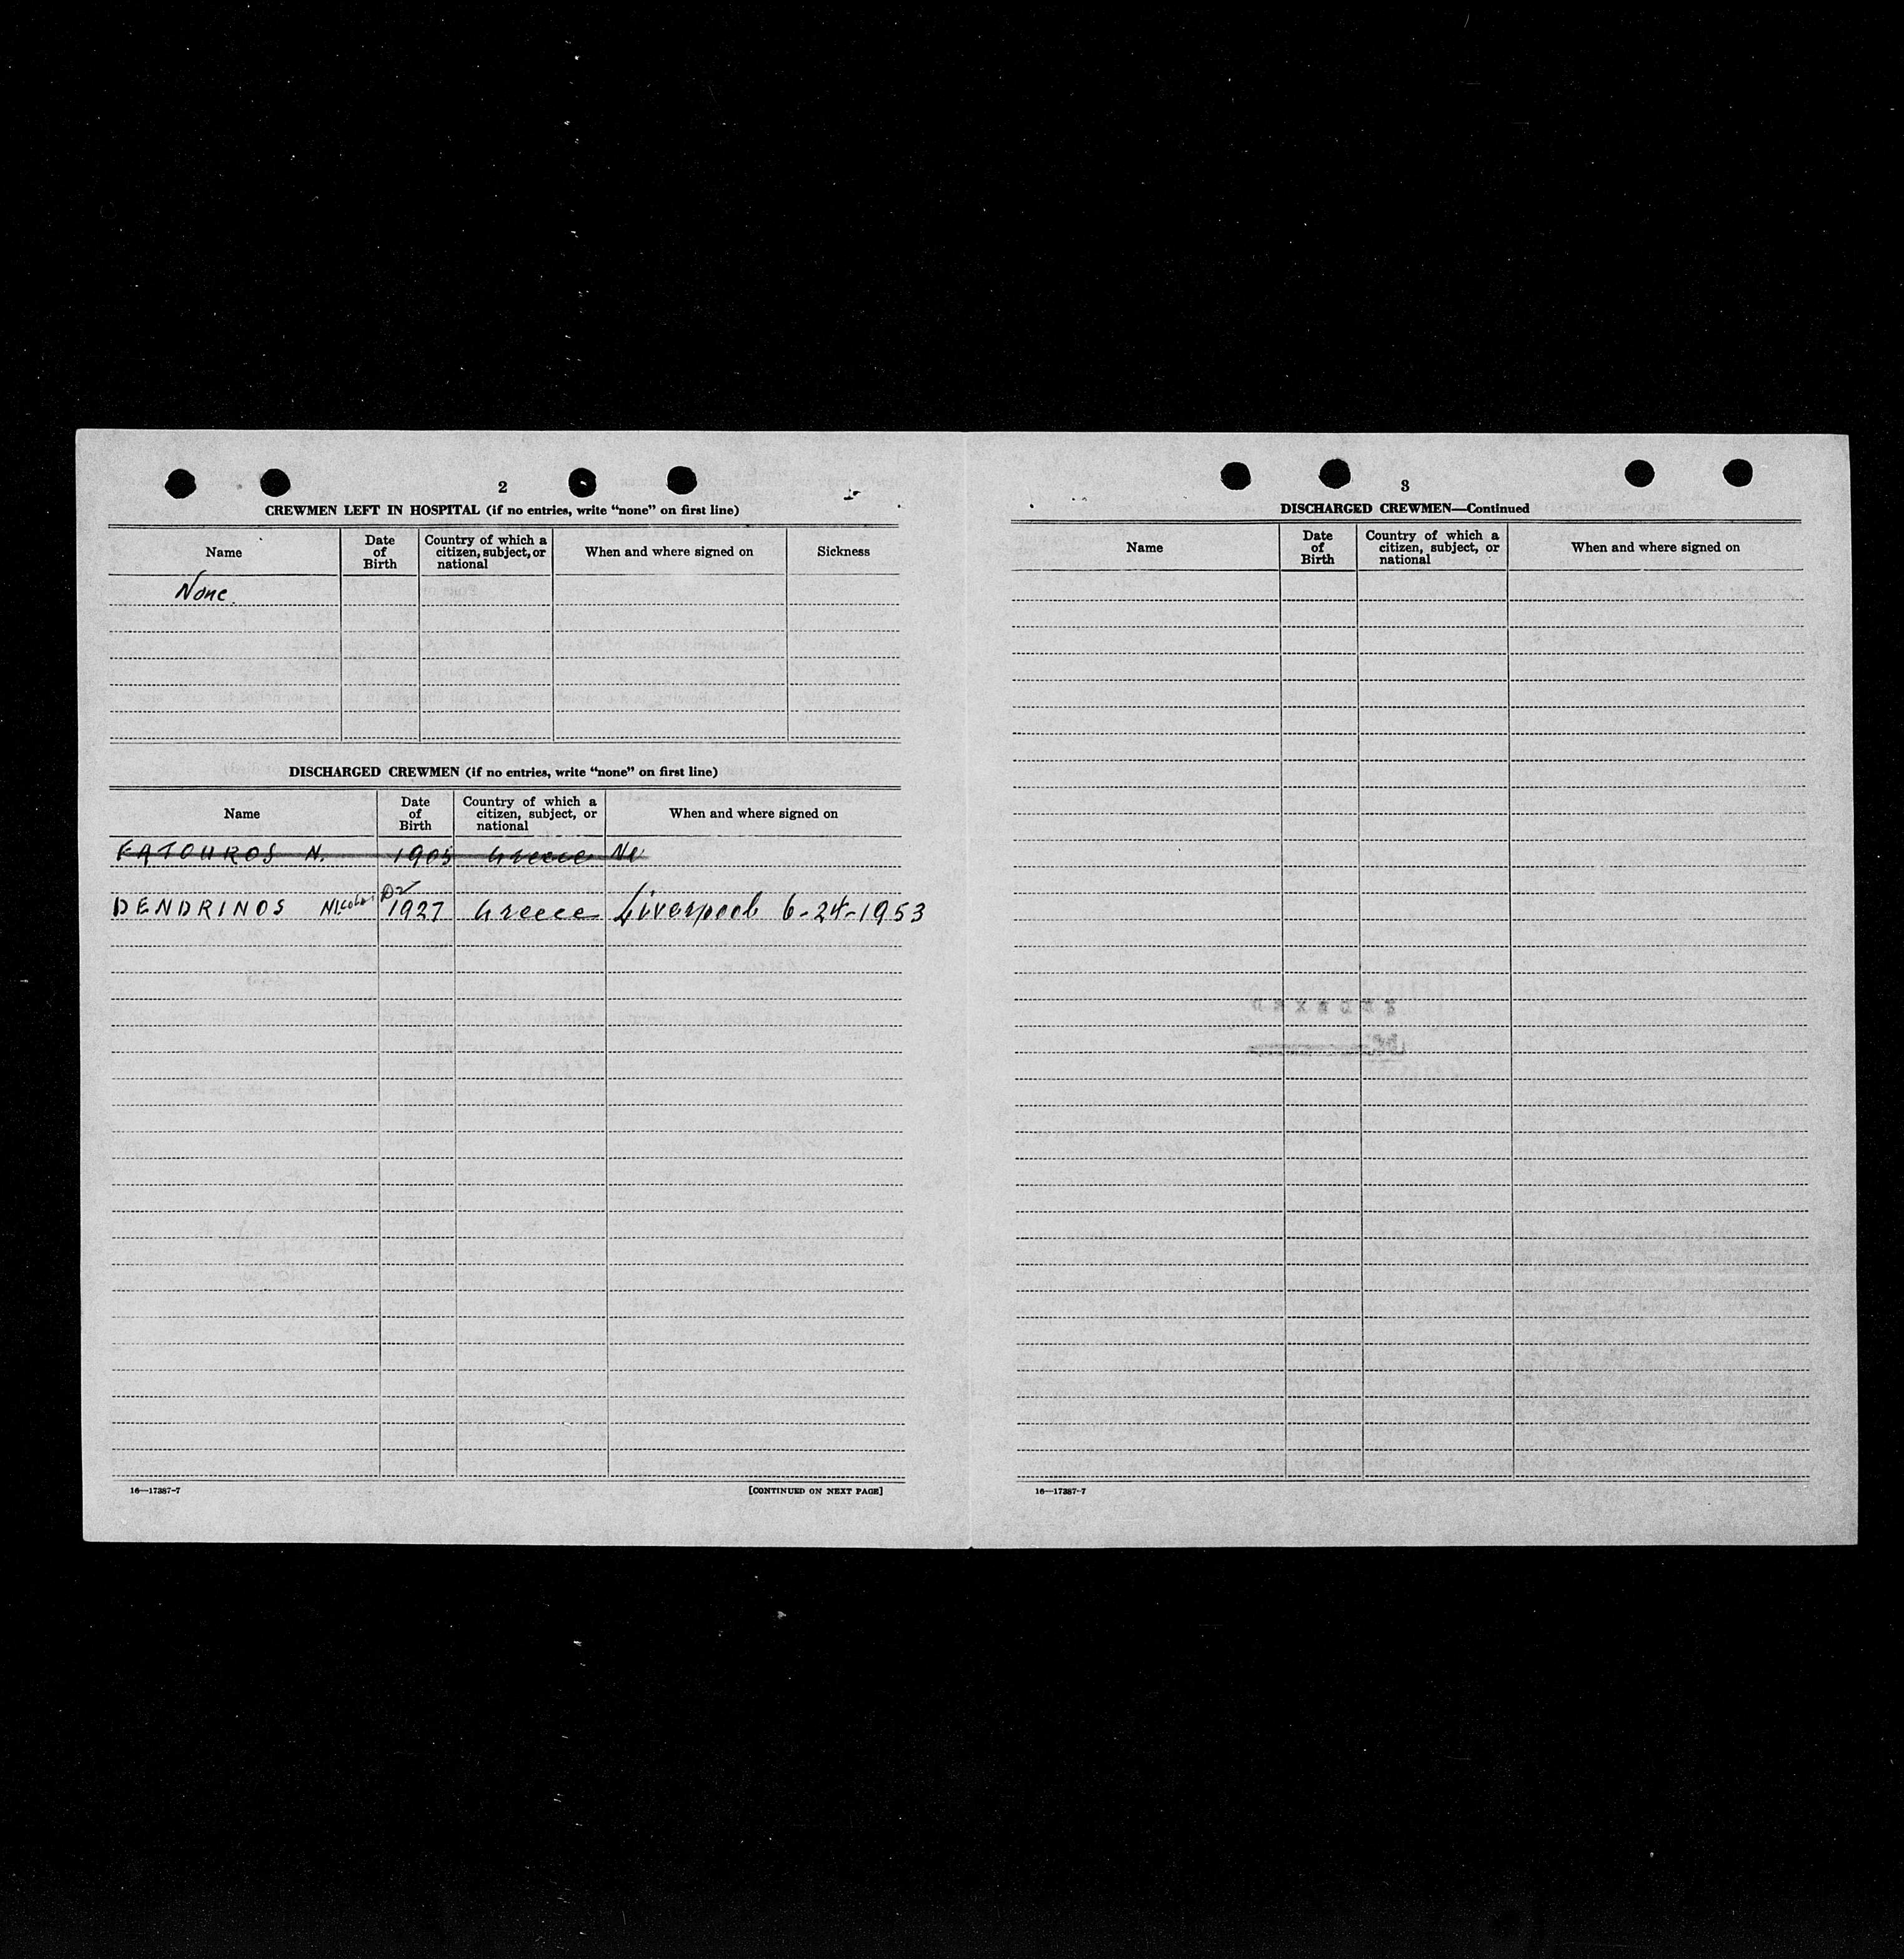 2
CREWMEN LEFT IN HOSPITAL (if no entries, write "none" on first line)
Name
Date of Birth
Country of which a citizen, subject, or national
When and where signed on
Sickness
None.
DISCHARGED CREWMEN (if no entries, write "none" on first line)
Name
Date of Birth
Country of which a citizen, subject, or national
When and where signed on
FATOUROS N. 1905 Greece
DENDRINOS 1927 Greece Liverpool 6-24-1953
16—17387-7
[CONTINUED ON NEXT PAGE]
3
DISCHARGED CREWMEN—Continued
Name
Date of Birth
Country of which a citizen, subject, or national
When and where signed on
16—17387-7